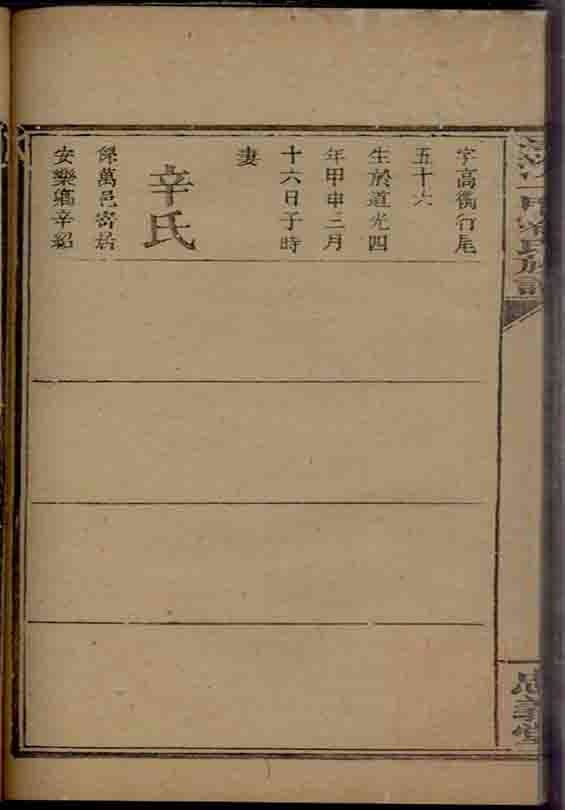 字高衡行尾
五十六
生於道光四
年甲申三月
十六日子時
妻
辛氏
係萬邑寄居
安樂鄉辛紹
氏族譜
忠義堂